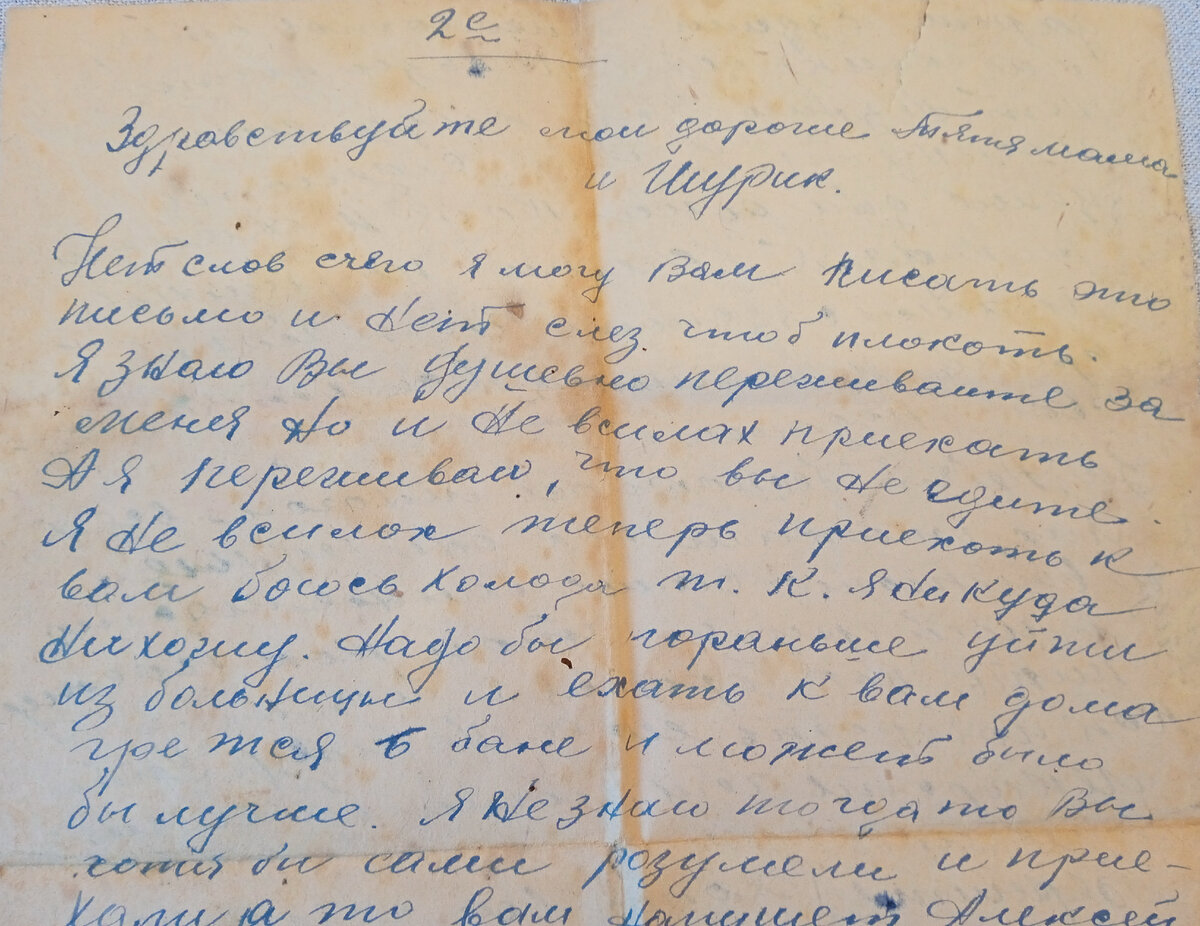 2е
Здравствуйте мои дорогие тятя мама
и Шурик.
Нет слов счего я могу Вам писать это
письмо и нет слез чтоб плокоть.
Я знаю Вы душевно переживаите за
меня Но и Не всилах приехать
А я переживаю, что вы не едите.
Я Не всилох теперь приехоть к
вам боюсь холода т. К. я никуда
Ни хожу. Надо бы пораньше уйти
из больницы и ехать к вам дома
гретжся в бане и может было
бы лучше. Я Не знаю тогда то Вы
хотя бы сами розумели и прие-
хали а то вам напишет Алексей